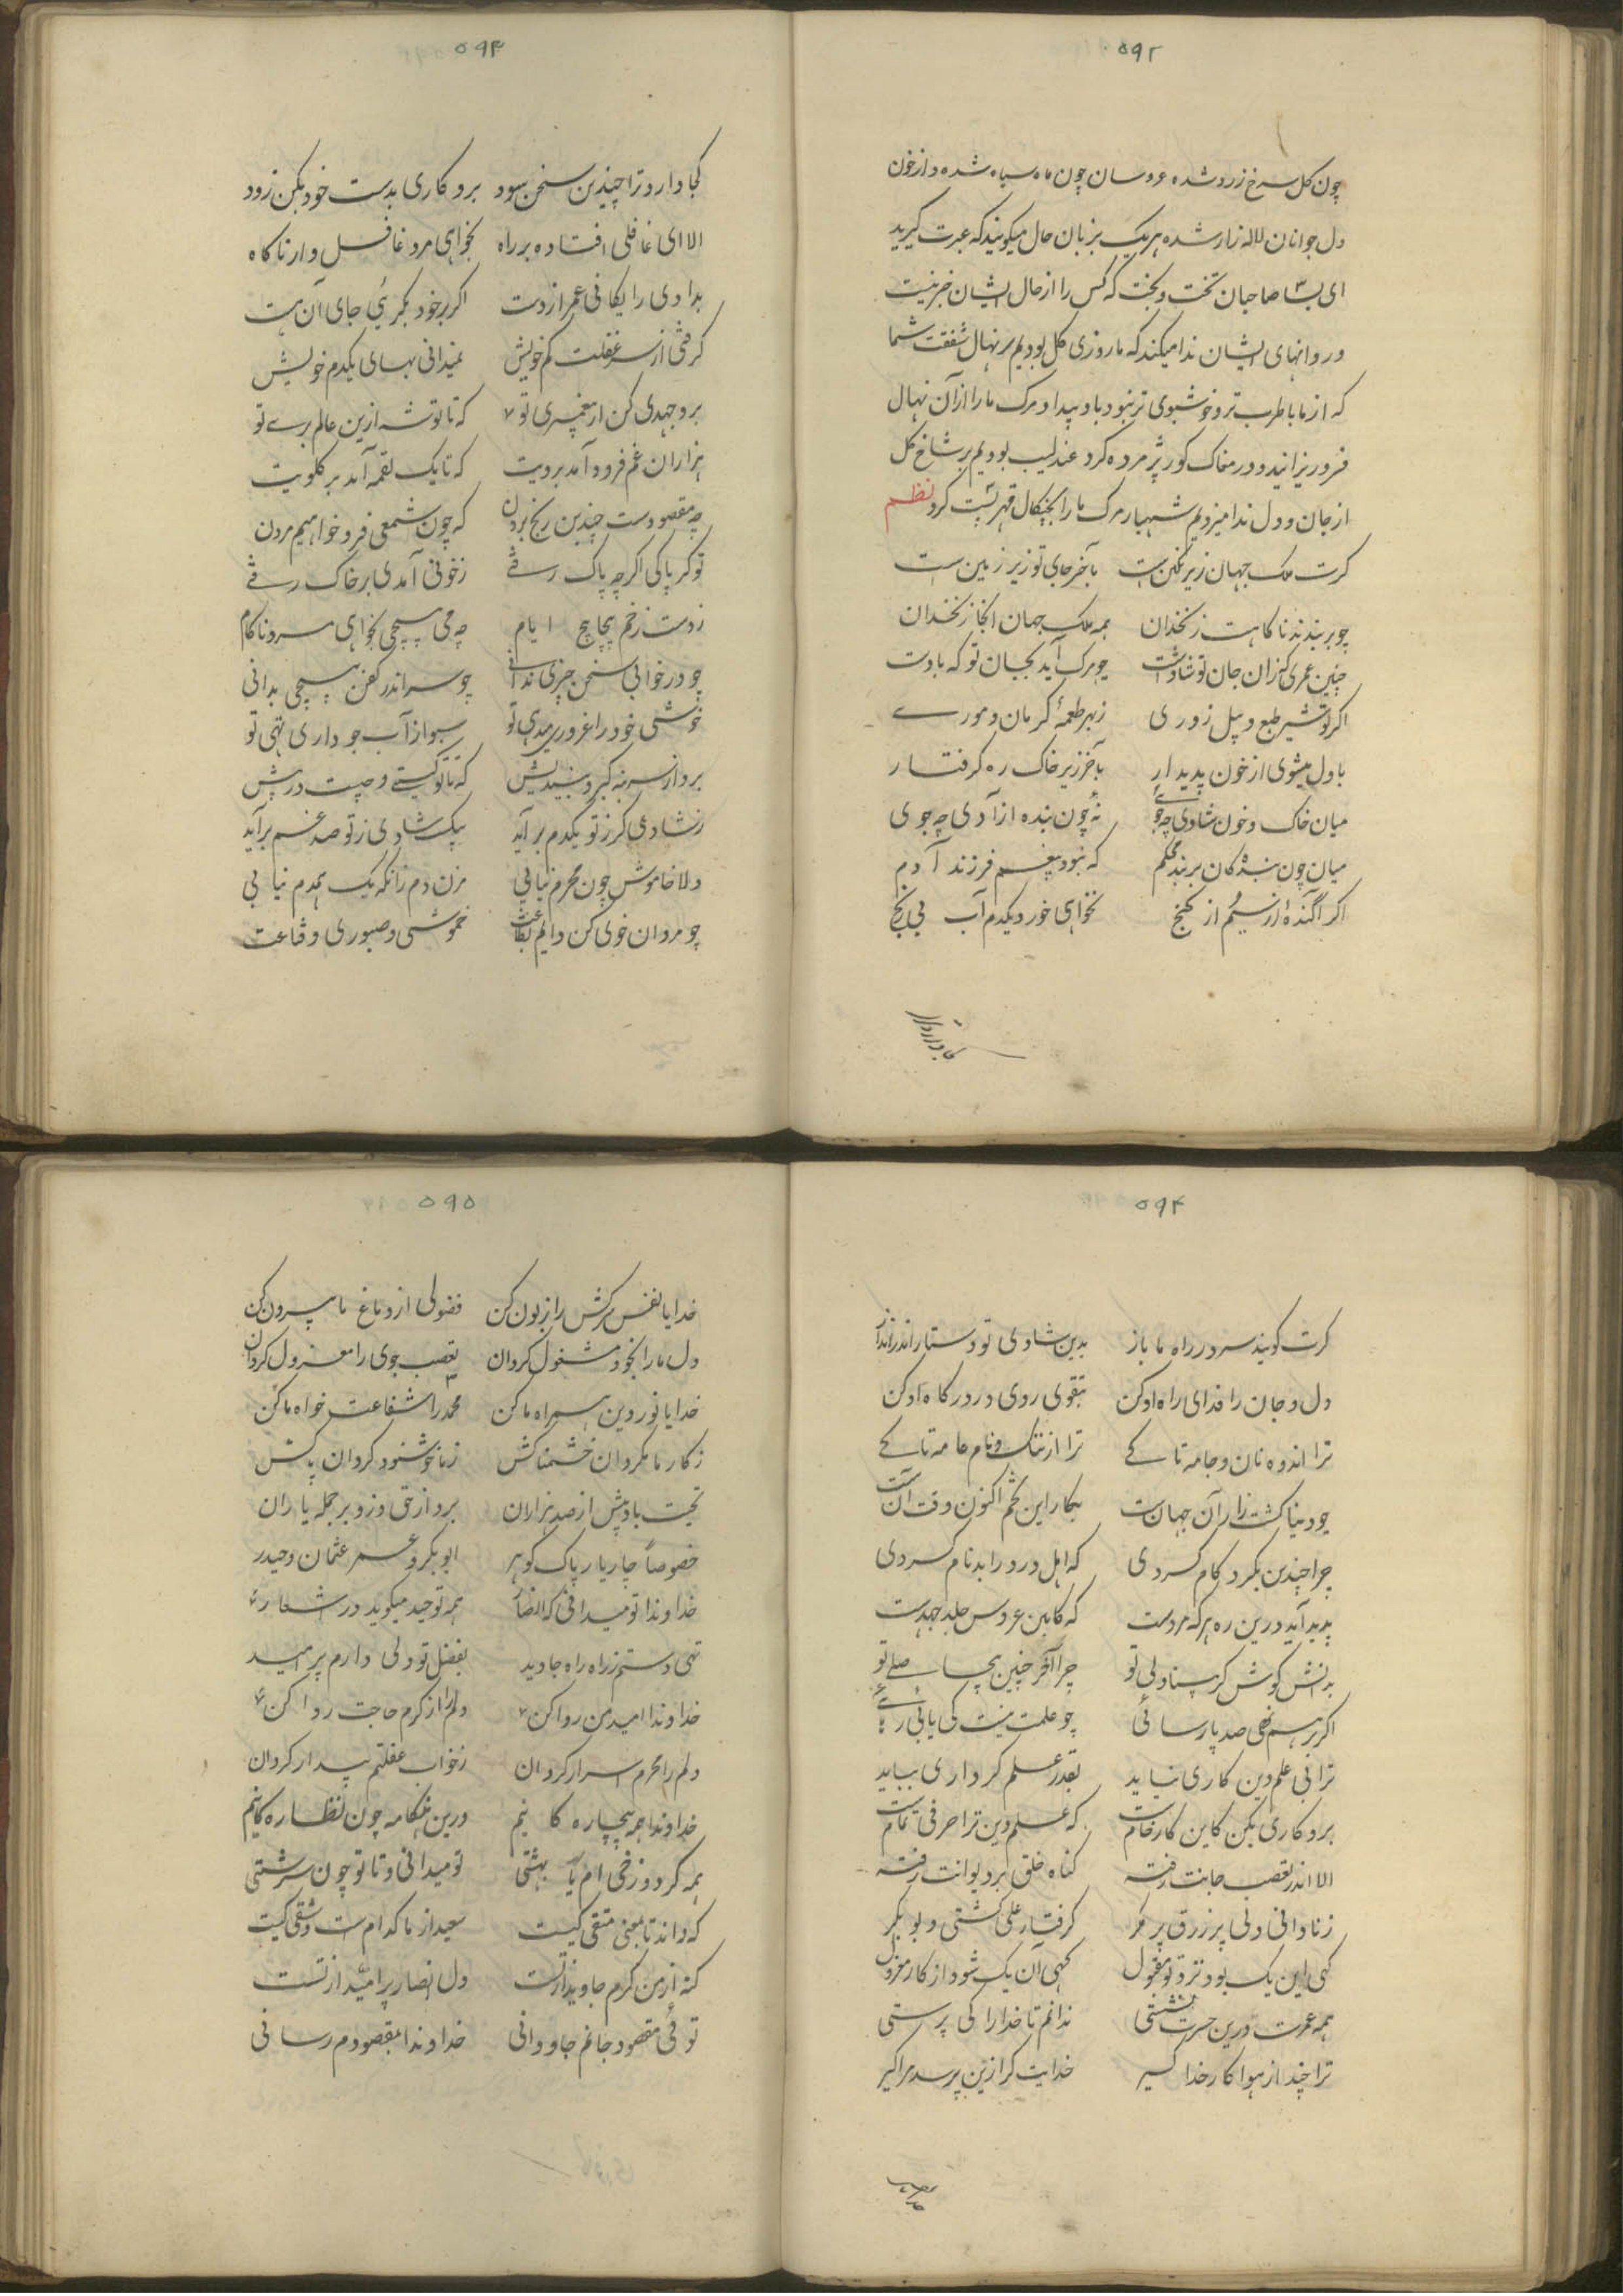 ۵۹۲
چون گل سرخ زرد شده عروسان چون ماه سیاه شده و از خون
دل جوانان لاله زار شده هر یک بزبان حال میگویند که عبرت گیرید
ای بسا صاحبان تخت و بخت که کس را از حال ایشان خبر نیست
و روانهای ایشان ندا میکند که ما روزی گل بودیم بر نهال شفقت شما
که از ما با طرب تر و خوشبوی تر نبود باد بیداد مرگ ما را از آن نهال
فرو ریزانید و در مغاک گور پژمرده کرد عندلیب بودیم بر شاخ گل
از جان و دل ندا میزدیم شهباز مرگ ما را بچنگال قهر پست کرد نظم
گرت ملک جهان زیر نگین است بآخر جای تو زیر زمین است
چو بربندند ناگاهت زنخدان همه ملک جهان آنجا زنخ دان
چنین عمری کزان جان تو شادست چو مرگ آید بجان تو که بادست
اگر تو شیر طبع و پیل زوری ز بهر طعمهٔ کرمان و موری
باول میشوی از خون پدیدار بآخر زیر خاک ره گرفتار
میان خاک و خون شادی چه جویی نهٔ چون بنده آزادی چه جوی
میان چون بندگان بربند محکم که نبود بیغم فرزند آدم
اگر آگنده از سیم از گنج نخواهی خورد یکدم آب بی رنج
۵۹۳
کجا دارد ترا چندین سخن سود برو کاری بدست خود بکن زود
الا ای غافلی افتاده بر راه بخواهی مرد غافل وار ناگاه
بدادی رایگانی عمر از دست اگر بر خود بگریی جای آن هست
گرفتی از سر غفلت کم خویش نمیدانی بهای یکدم خویش
برو جهدی کن ار پیغمبری تو که تا توشه ازین عالم بری تو
هزاران غم فرود آمد برویت که تا یک لقمه آمد بر گلویت
چه مقصودست چندین رنج بردن که چون شمعی فرو خواهیم مردن
تو گر پاکی اگرچه پاک رفتی ز خونی آمدی بر خاک رفتی
ز دست زخم پیچاپیچ ایام چه می پیچی بخواهی مرد ناکام
چو در خوابی سخن چیزی ندانی چو سر اندر کفن پیچی بدانی
خوشی خود را غروری میدهی تو سبو از آب جو داری تهی تو
برو از سر بنه کبر و بیندیش که تا تو کیستی و چیست در پیش
ز شادی گر ز تو یکدم برآید بیک شادی ز تو صد غم برآید
دلا خاموش چون محرم نیابی مزن دم زانکه یک همدم نیابی
چو مردان خوی کن دایم بطاعت خموشی و صبوری و قناعت
۵۹۴
گرت گویند سر در راه ما باز بدین شادی تو دستار اندر انداز
دل و جان را فدای راه او کن بتقوی روی در درگاه او کن
ترا اندوه نان و جامه تا کی ترا از ننگ و نام عامه تا کی
چو دنیا کشت زار آن جهانست بکار این تخم اکنون وقت آنست
چرا چندین بگرد کام گردی که اهل درد را بدنام کردی
پدید آید درین ره هر که مردست که کابین عروس جلد جهدست
بدانش کوش گر بینا دلی تو چرا آخر چنین بیحاصلی تو
اگر بر هم نهی صد پارسائی چو علمت نیست کی یابی رهائی
ترا بی علم دین کاری نیاید بقدر علم کرداری بباید
برو کاری بکن کاین کار خامست که علم دین ترا حرفی تمامست
الا اندر تعصب جانت رفته گناه خلق بر دیوانت رفته
ز نادانی دلی پر زرق پر مکر گرفتار علی گشتی و بوبکر
گهی این یک بود نزد تو مقبول گهی آن یک شود از کار معزول
همه عمرت درین حسرت نشستی ندانم تا خدا را کی پرستی
ترا چند از هوا کار خدا گیر خدایت گر ازین پرسد مرا گیر
۵۹۵
خدایا نفس سرکش را زبون کن فضولی از دماغ ما بیرون کن
دل ما را بخود مشغول گردان تعصب جوی را معزول گردان
خدایا نور دین همراه ما کن محمد را شفاعت خواه ما کن
ز کار ما مگردان خشمناکش ز ما خوشنود گردان پاکش
تحیت باد بیش از صد هزاران برو از حق وزو بر جمله یاران
خصوصاً چار یار پاک گوهر ابوبکر و عمر عثمان و حیدر
خداوندا تو میدانی که همه توحید میگوید در اشعار
تهی دستم ز راه جاوید بفضل تو دلی دارم پر امید
خداوندا امید من روا کن دلم را از کرم حاجت روا کن
دلم را محرم اسرار گردان ز خواب غفلتم بیدار گردان
خداوندا همه بیچاره گانیم درین هنگامه چون نظاره گانیم
همه گر دوزخی ام یا بهشتی تو میدانی و تا تو چون سرشتی
که داند تا بمعنی متقی کیست سعید از ما کدام است و شقی کیست
گنه از من کرم جاوید از تست دل انصار پر امید از تست
توئی مقصود جانم جاودانی خداوندا بمقصودم رسانی